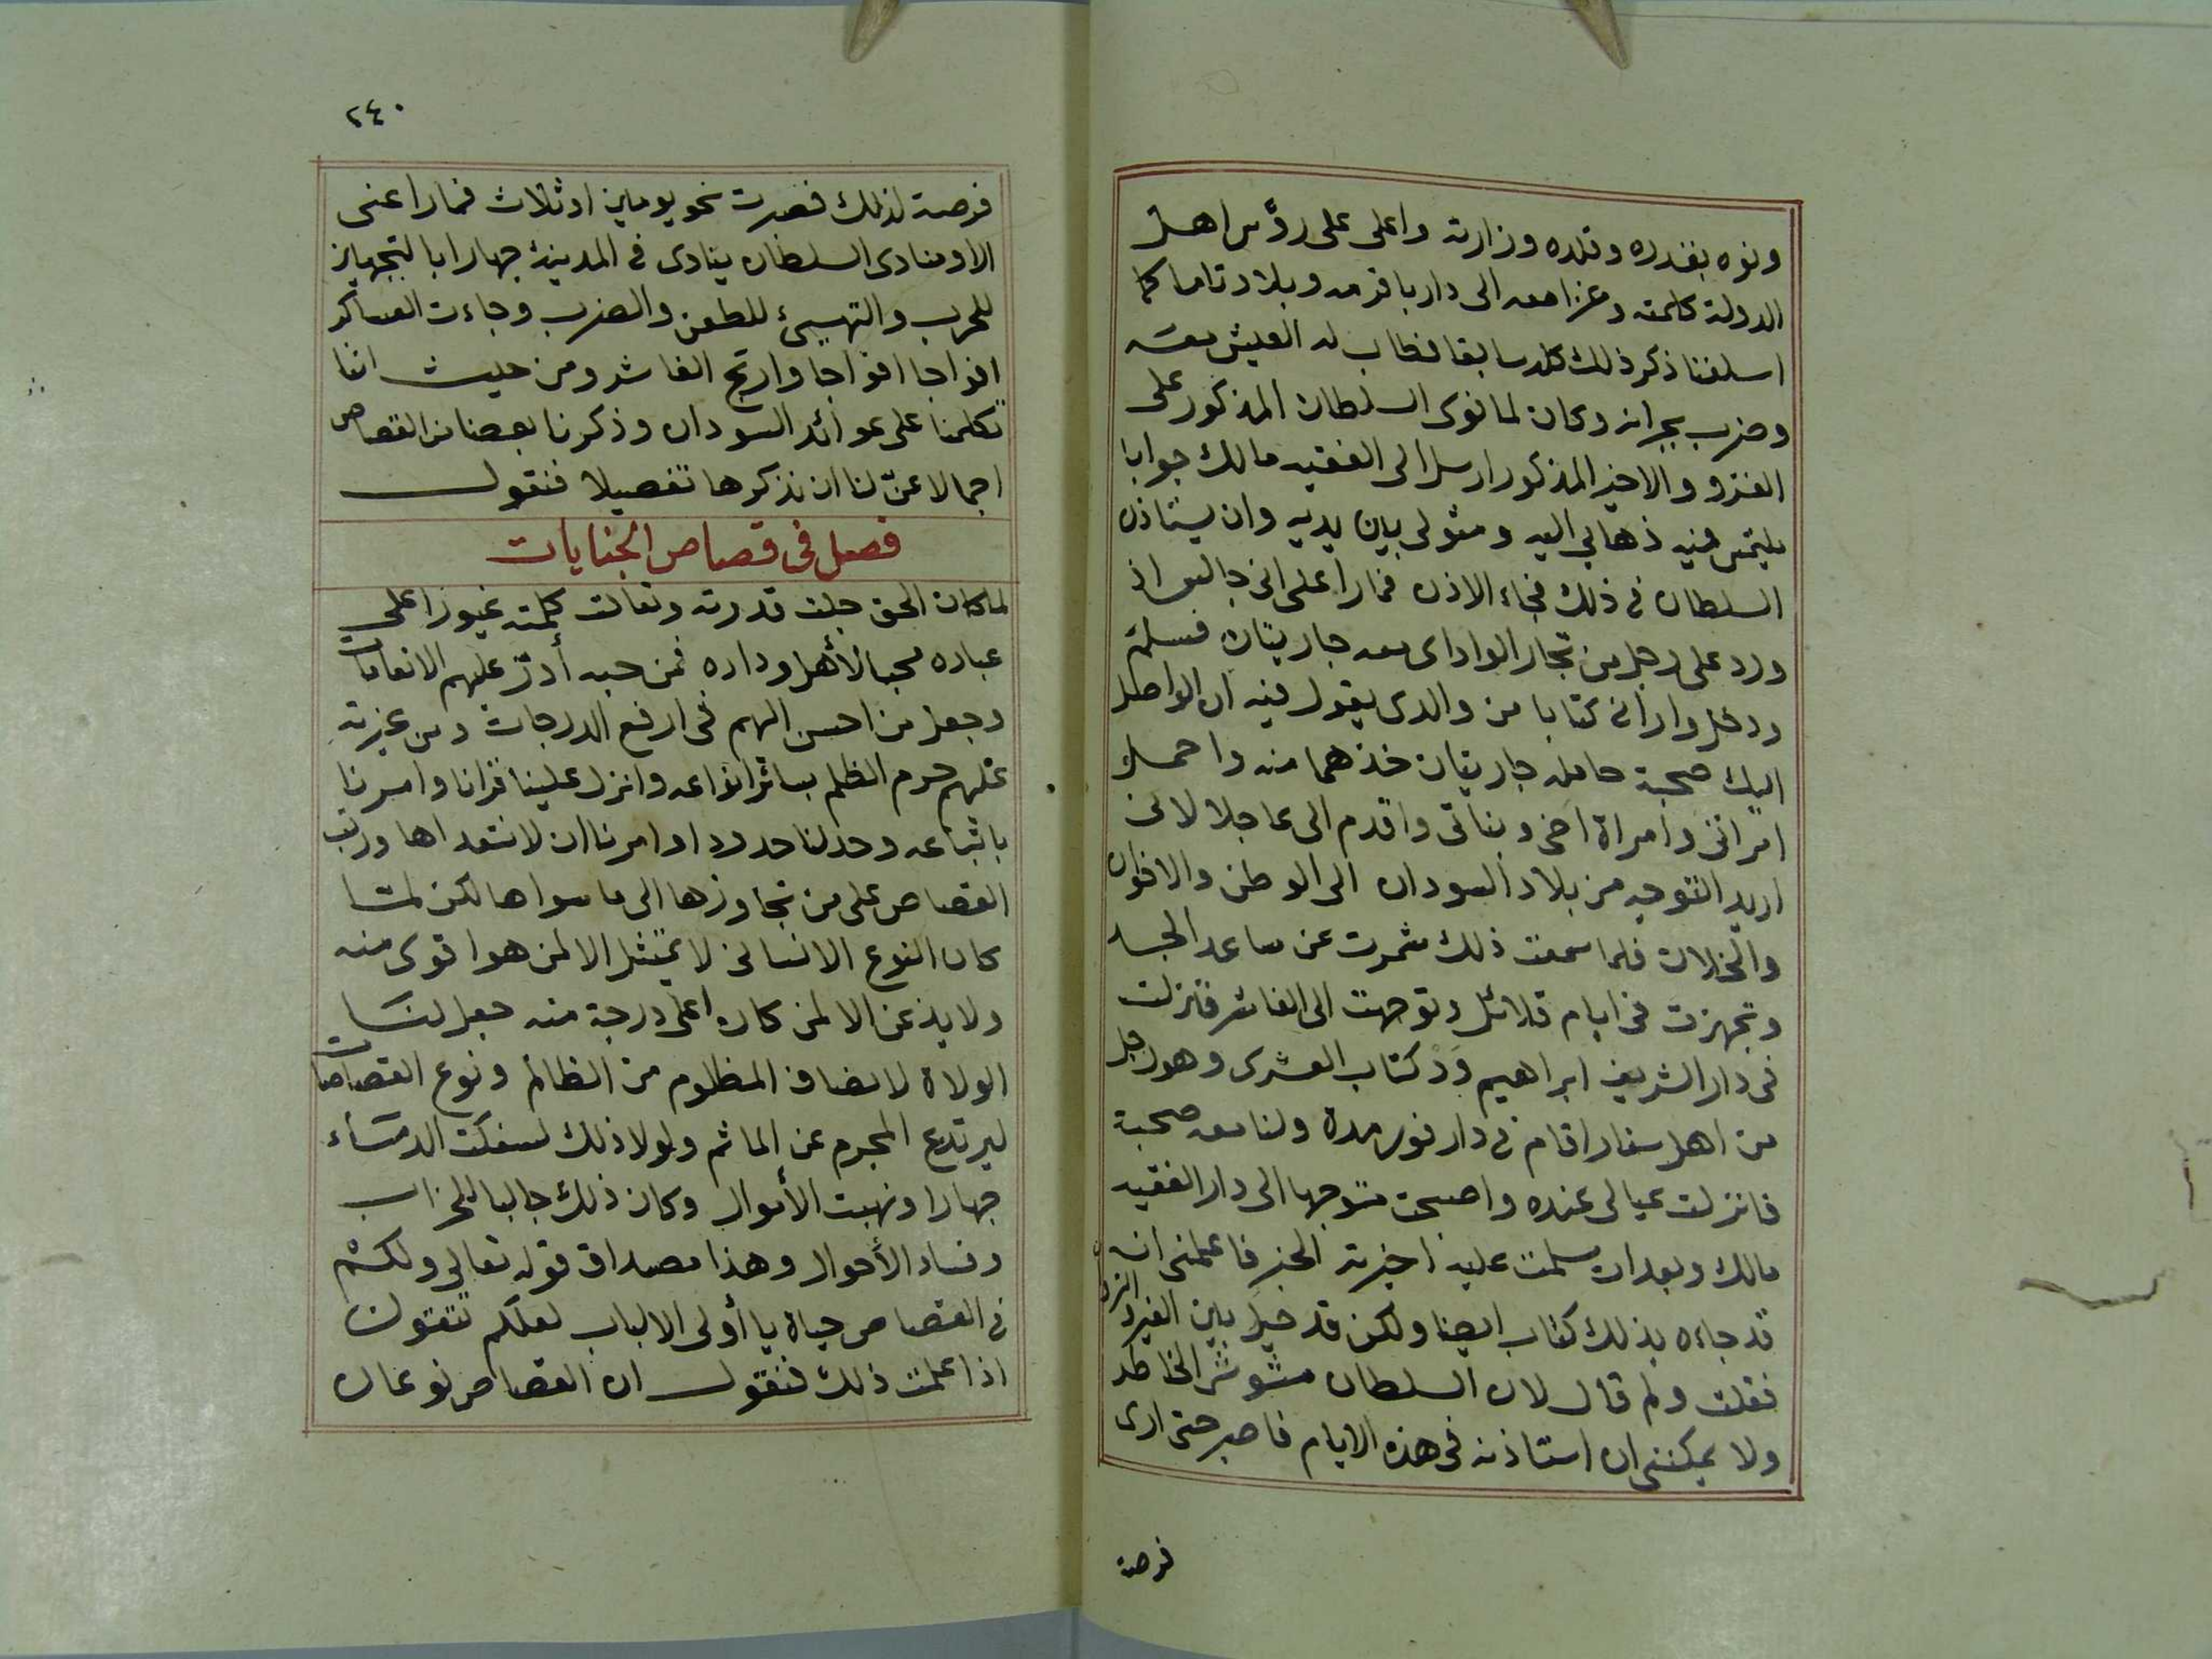 ونوه بقدره وقلده وزارته واعلى على رؤس اهل
الدولة كلمته وغزا معه الى دار باقرمه وبلاد تاما كما
اسلفنا ذكر ذلك كله سابقا فطاب له العيش معه
وضرب بجرانه وكان لما نوى السلطان المذكور على
الغزو والاخير المذكور ارسل الى الفقيه مالك جوابا
يلتمس فيه ذهابي اليه ومثولى بين يديه وان يستاذن
السلطان فى ذلك فجاء الاذن فما راعنى انى جالس اذ
ورد على رجل من تجار الواداى معه جاريتان فسلم
ودخل وارانى كتابا من والدى يقول فيه ان الواصل
اليك صحبة حامله جاريتان خذهما منه واحمل
امراتى وامراة اخى وبناتى واقدم الى عاجلا لانى
اريد التوجه من بلاد السودان الى الوطن والاخوان
والخلان فلما سمعت ذلك شمرت عن ساعد الجد
وتجهزت فى ايام قلائل وتوجهت الى الفاشر فنزلت
فى دار الشريف ابراهيم وَدْ كتاب العشرى وهو رجل
من اهل سنار اقام فى دارفور مدة ولنا معه صحبة
فانزلت عيالى عنده واصبحت متوجها الى دار الفقيه
مالك وبعد ان سلمت عليه اخبرته الخبر فاعلمنى انه
قد جاءه بذلك كتاب ايضا ولكن قد حيل بين العير والنزوان
فقلت ولم قال لان السلطان مشوش الخاطر
ولا يمكننى ان استاذنه فى هذه الايام فاصبر حتى ارى
فرصة
٢٤٠
فرصة لذلك فصبرت نحو يومين او ثلاث فما راعنى
الا ومنادى السلطان ينادى فى المدينة جهارا بالتجهيز
للحرب والتهيىء للطعن والضرب وجاءت العساكر
افواجا افواجا وارتج الفاشر ومن حيث اننا
تكلمنا على عوائد السودان وذكرنا بعضا من القصاص
اجمالا عنّ لنا ان نذكرها تفصيلا فنقول
فصل فى قصاص الجنايات
لما كان الحق جلت قدرته وتعالت كلمته غيورا على
عباده محبا لأهل وداده فمن حبه أدرّ عليهم الانعامات
وجعل من احسن اليهم فى ارفع الدرجات ومن غيرته
عليهم حرم الظلم بسائر انواعه وانزل علينا قرانا وامرنا
باتباعه وحد لنا حدودا وامرنا ان لا نتعداها ورتب
القصاص على من تجاوزها الى ما سواها لكن لما
كان النوع الانسانى لا يمتثل الا لمن هو اقوى منه
ولا يذعن الا لمن كان اعلى درجة منه جعل لنا
الولاة لانصاف المظلوم من الظالم ونوع القصاصات
ليرتدع المجرم عن الماثم ولولا ذلك لسفكت الدماء
جهارا ونهبت الأموال وكان ذلك جالبا للخراب
وفساد الأحوال وهذا مصداق قوله تعالى ولكم
فى القصاص حياة يا أولى الالباب لعلكم تتقون
اذا علمت ذلك فنقول ان القصاص نوعان